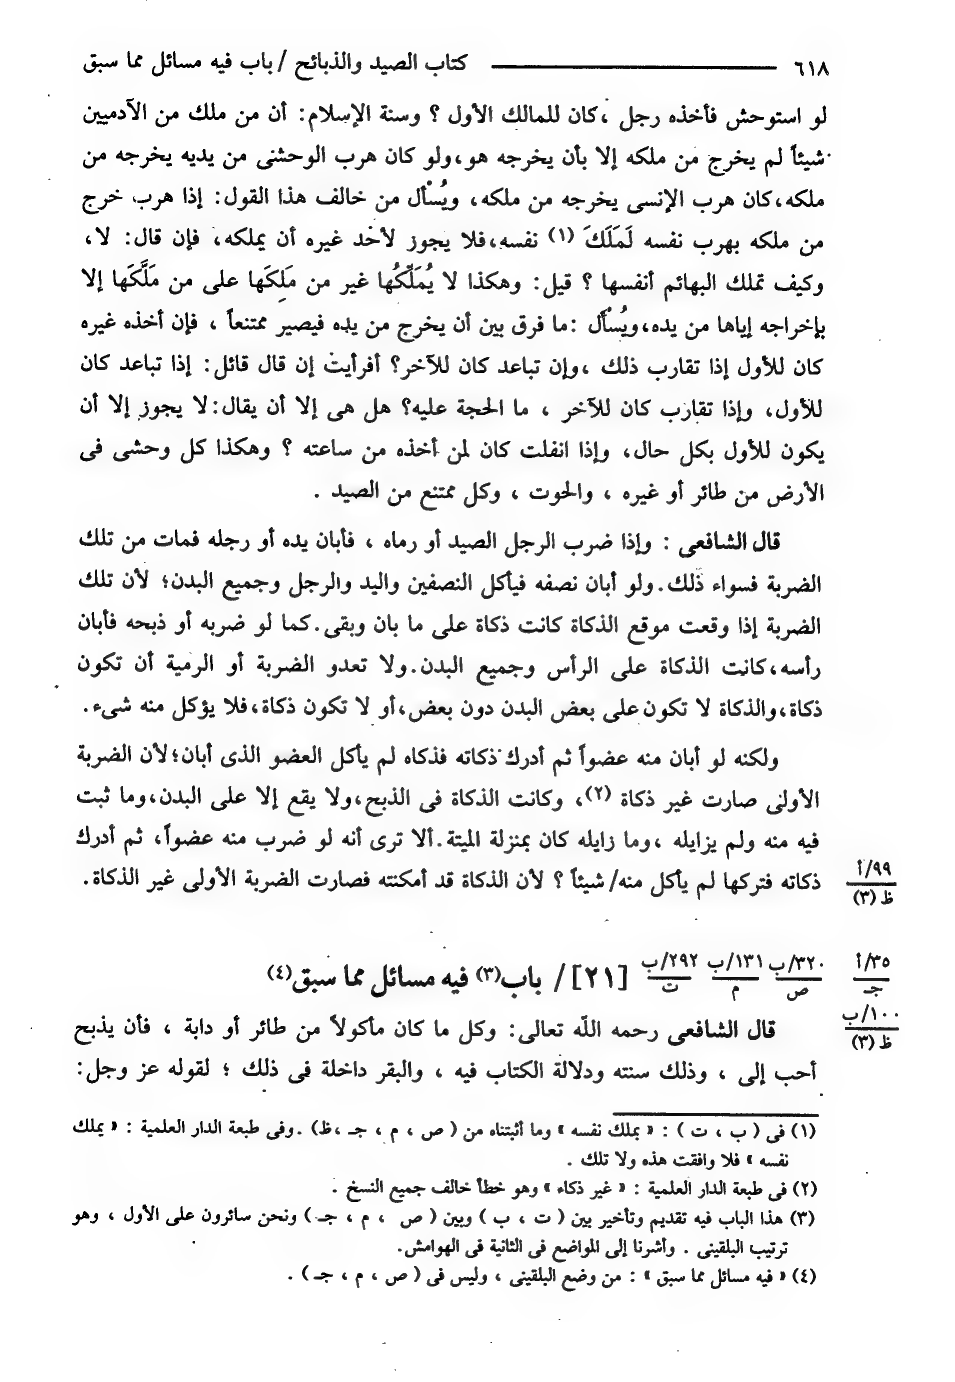 ٦١٨ ــــــــــــــــــ كتاب الصيد والذبائح / باب فيه مسائل مما سبق
لو استوحش فأخذه رجل ، كان للمالك الأول ؟ وسنة الإسلام: أن من ملك من الآدميين
شيئاً لم يخرج من ملكه إلا بأن يخرجه هو،ولو كان هرب الوحشى من يديه يخرجه من
ملكه،كان هرب الإنسى يخرجه من ملكه، ويُسْأل من خالف هذا القول: إذا هرب خرج
من ملكه بهرب نفسه لَمَلَكَ (١) نفسه،فلا يجوز لأحد غيره أن يملكه، فإن قال: لا،
وكيف تملك البهائم أنفسها ؟ قيل: وهكذا لا يُمَلِّكُها غير من مَلِكَها على من مَلَّكَها إلا
بإخراجه إياها من يده،ويُسْأل :ما فرق بين أن يخرج من يده فيصير ممتنعاً ، فإن أخذه غيره
كان للأول إذا تقارب ذلك ،وإن تباعد كان للآخر؟ أفرأيت إن قال قائل: إذا تباعد كان
للأول، وإذا تقارب كان للآخر ، ما الحجة عليه؟ هل هى إلا أن يقال:لا يجوز إلا أن
يكون للأول بكل حال، وإذا انفلت كان لمن أخذه من ساعته ؟ وهكذا كل وحشى فى
الأرض من طائر أو غيره ، والحوت ، وكل ممتنع من الصيد .
قال الشافعى : وإذا ضرب الرجل الصيد أو رماه ، فأبان يده أو رجله فمات من تلك
الضربة فسواء ذلك.ولو أبان نصفه فيأكل النصفين واليد والرجل وجميع البدن؛ لأن تلك
الضربة إذا وقعت موقع الذكاة كانت ذكاة على ما بان وبقى.كما لو ضربه أو ذبحه فأبان
رأسه،كانت الذكاة على الرأس وجميع البدن.ولا تعدو الضربة أو الرمية أن تكون
ذكاة،والذكاة لا تكون على بعض البدن دون بعض،أو لا تكون ذكاة،فلا يؤكل منه شىء.
ولكنه لو أبان منه عضواً ثم أدرك ذكاته فذكاه لم يأكل العضو الذى أبان؛لأن الضربة
الأولى صارت غير ذكاة (٢)، وكانت الذكاة فى الذبح،ولا يقع إلا على البدن،وما ثبت
فيه منه ولم يزايله ،وما زايله كان بمنزلة الميتة.ألا ترى أنه لو ضرب منه عضواً، ثم أدرك
ذكاته فتركها لم يأكل منه/ شيئاً ؟ لأن الذكاة قد أمكنته فصارت الضربة الأولى غير الذكاة.
٩٩/أ
ظ (٣)
٣٥/أ
جـ
١٠٠/ب
ظ (٣)
٣٢٠/ب
ص
١٣١/ب
م
٢٩٢/ب
ت
[٢١] / باب(٣) فيه مسائل مما سبق(٤)
قال الشافعى رحمه الله تعالى: وكل ما كان مأكولاً من طائر أو دابة ، فأن يذبح
أحب إلى ، وذلك سنته ودلالة الكتاب فيه ، والبقر داخلة فى ذلك ؛ لقوله عز وجل:
(١) فى ( ب ، ت ) : « يملك نفسه » وما أثبتناه من ( ص ، م ، جـ ،ظ) .وفى طبعة الدار العلمية : « يملك
نفسه » فلا وافقت هذه ولا تلك .
(٢) فى طبعة الدار العلمية : « غير ذكاء » وهو خطأ خالف جميع النسخ .
(٣) هذا الباب فيه تقديم وتأخير بين ( ت ، ب ) وبين ( ص ، م ، جـ ) ونحن سائرون على الأول ، وهو
ترتيب البلقينى . وأشرنا إلى المواضع فى الثانية فى الهوامش.
(٤) « فيه مسائل مما سبق » : من وضع البلقينى ، وليس فى ( ص ، م ، جـ ) .